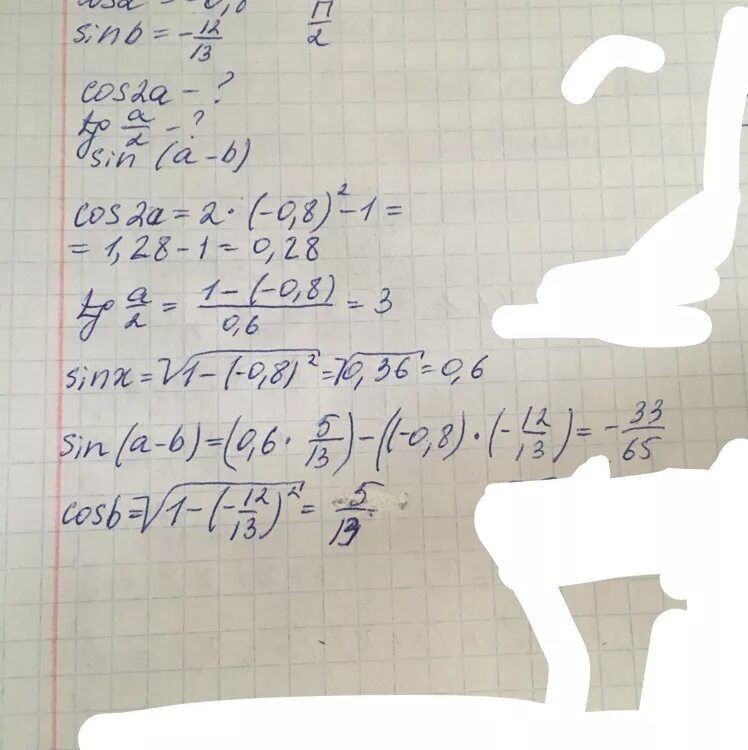 cosa = -0,8 П/2
sin b = -12/13
cos2a - ?
tg a/2 - ?
sin (a - b)
cos2a = 2 · (-0,8)² - 1 =
= 1,28 - 1 = 0,28
tg a/2 = (1 - (-0,8))/0,6 = 3
sinx = √1 - (-0,8)² = √0,36 = 0,6
sin (a - b) = (0,6 · 5/13) - ((-0,8) · (-12/13)) = -33/65
cosb = √1 - (-12/13)² = 5/13